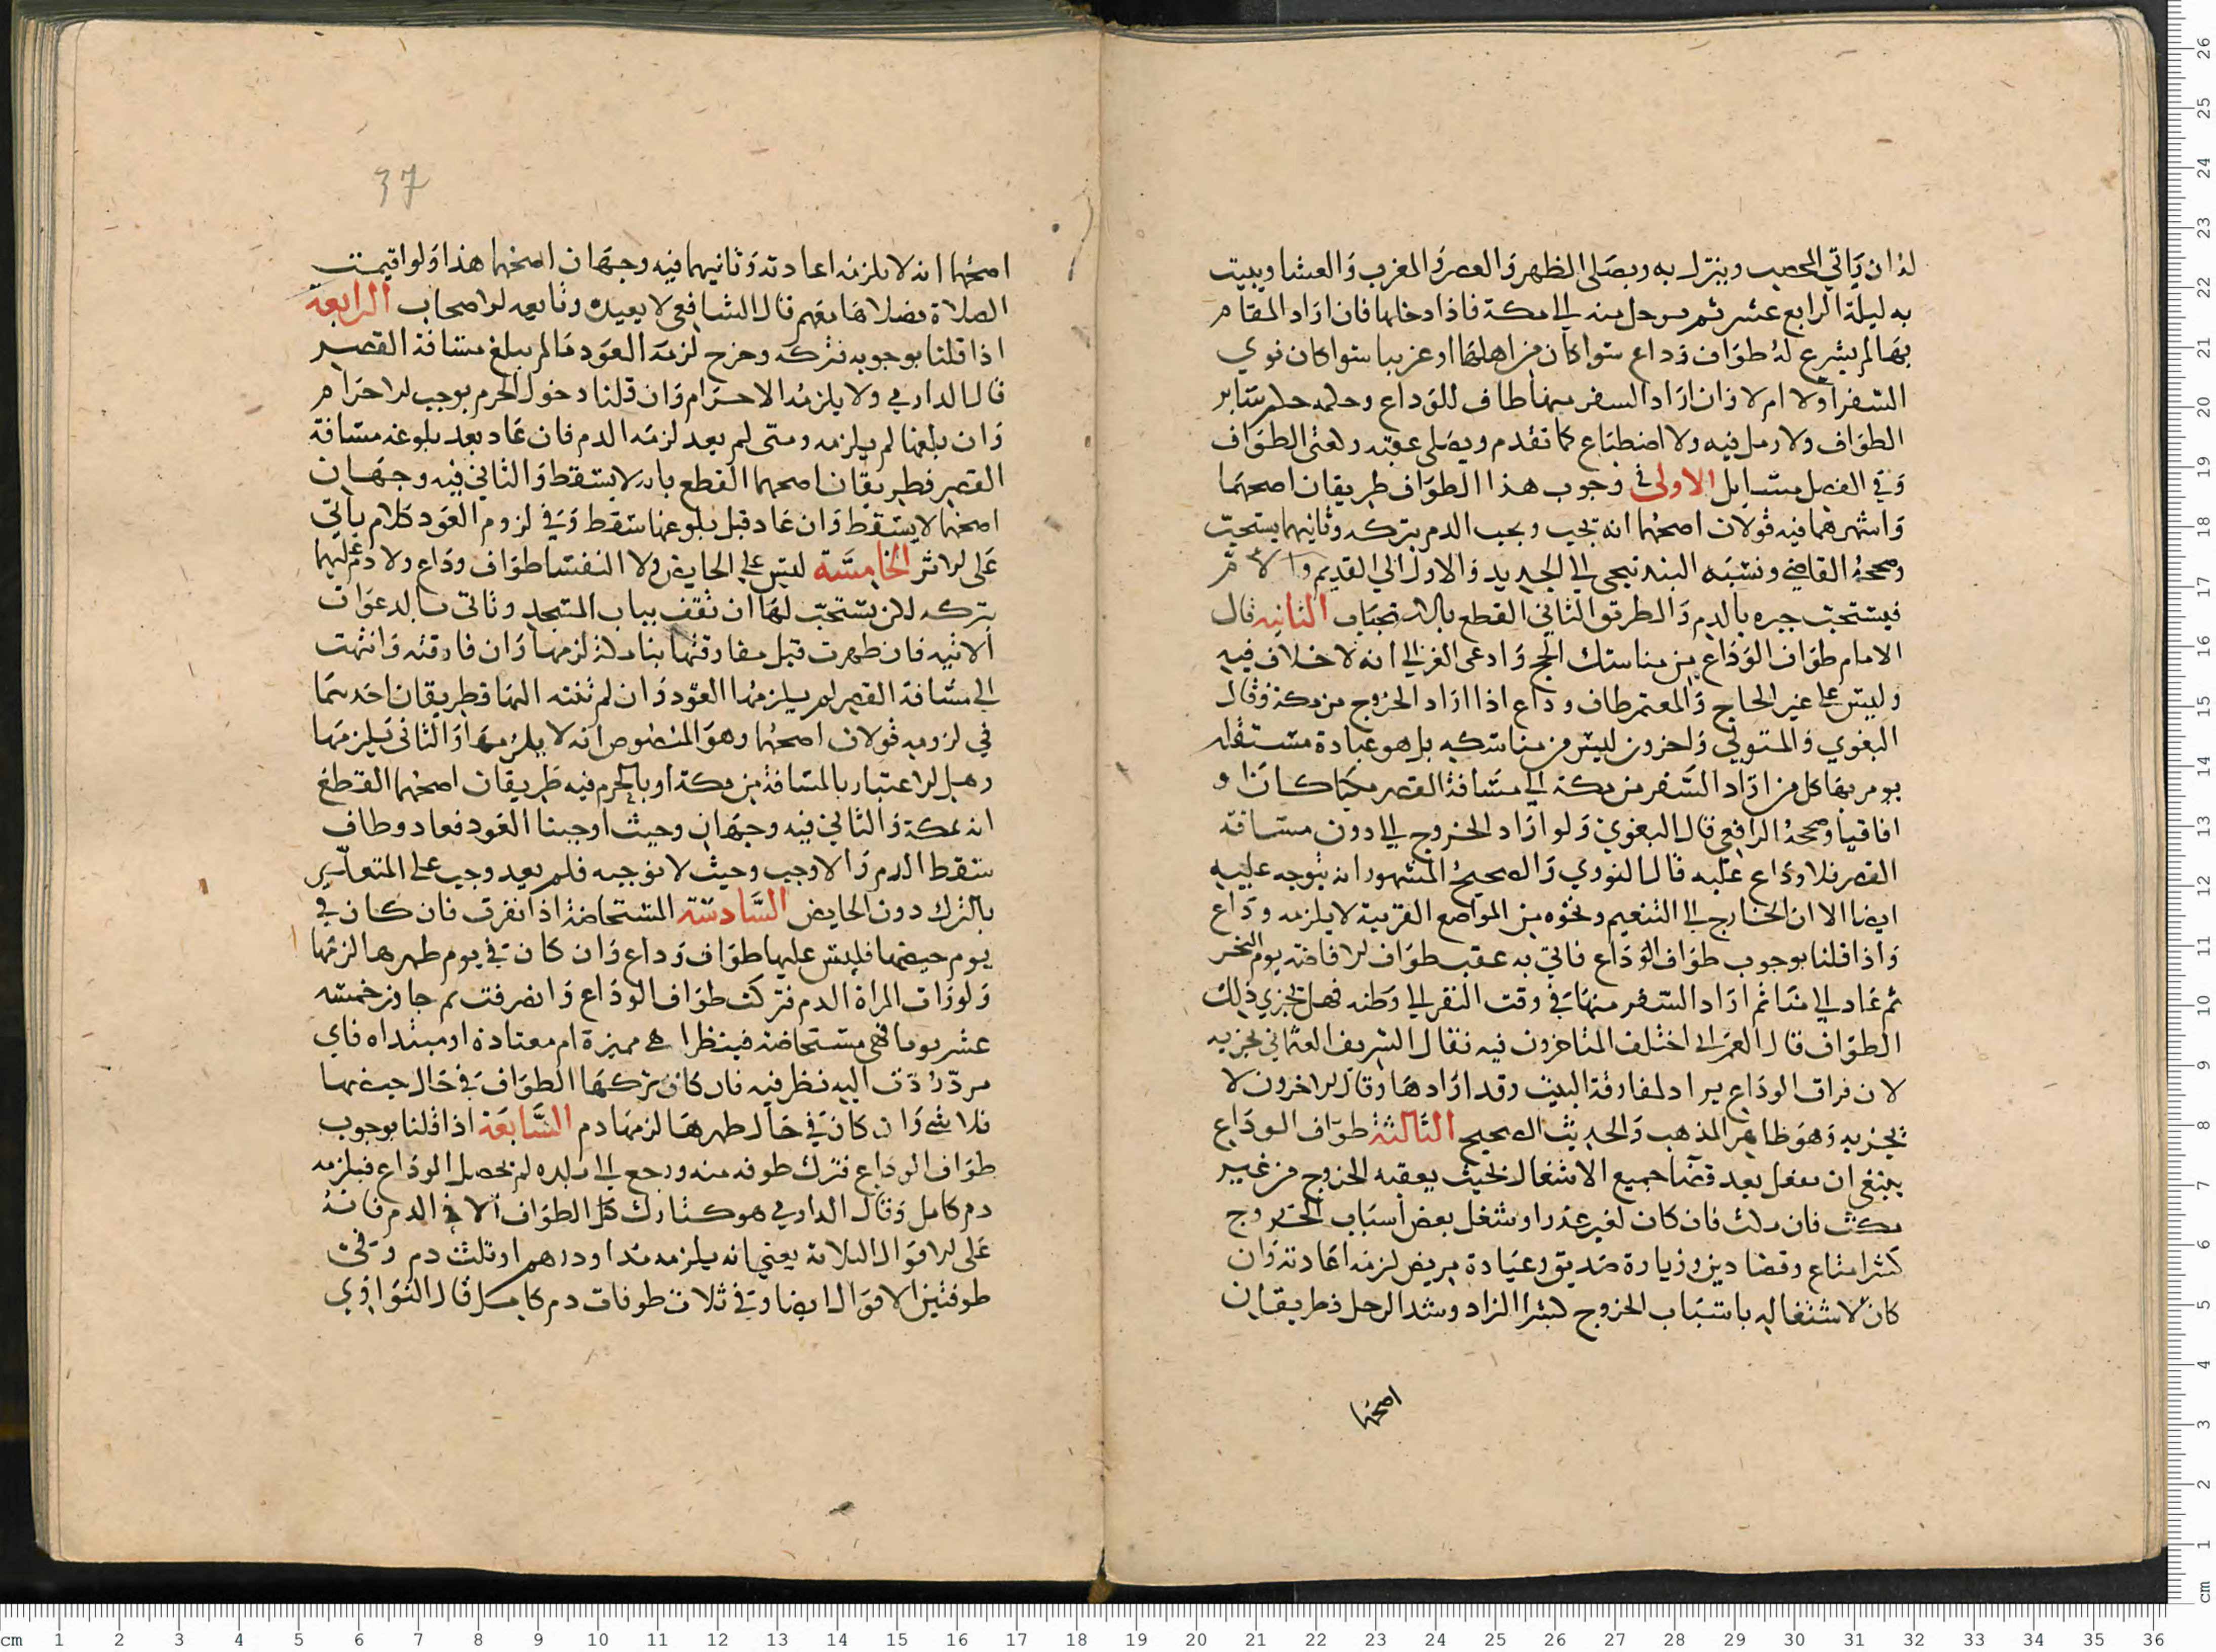 له ان ياتي المحصب وينزل به ويصلى الظهر والعصر والمغرب والعشا ويبيت
به ليلة الرابع عشر ثم يرحل منه الى مكة فاذا دخلها فان اراد المقام
بها لم يشرع له طواف وداع سوا كان من اهلها او غريبا سوا كان نوي
السفر اولا ام لا وان اراد السفر منها طاف للوداع وحكمه حكم ساير
الطواف ولا رمل فيه ولا اضطباع كما تقدم ويصلى عقبه ركعتى الطواف
وفي الفصل مسايل الاولى في وجوب هذا الطواف طريقان اصحهما
واشهرهما فيه قولان اصحهما انه يجب ويجب الدم بتركه وثانيهما يستحب
وصححه القاضي ونسبه البندنيجى الى الجديد والاول الى القديم
فيستحب جبره بالدم والطريق الثاني القطع بالاستحباب الثانيه قال
الامام طواف الوداع من مناسك الحج وادعى الغزالي انه لا خلاف فيه
وليس على غير الحاج والمعتمر طاف وداع اذا اراد الخروج من مكة وقال
البغوي والمتولي واخرون ليس من مناسكه بل هو عبادة مستقله
يومر بها كل من اراد السفر من مكة الى مسافة القصر مكيا كان او
افاقيا وصححه الرافعي قال البغوي ولو اراد الخروج الى دون مسافة
القصر فلا وداع عليه قال النوري والصحيح المشهور انه يتوجه عليه
ايضا الا ان الخارج الى التنعيم ونحوه من المواضع القريبة لا يلزمه وداع
واذا قلنا بوجوب طواف الوداع فاتي به عقب طواف الافاضة يوم النحر
ثم عاد الى منا ثم اراد السفر منها في وقت النفر الى وطنه فهل يجزي ذلك
الطواف قال العمراني اختلف المتاخرون فيه فقال الشريف العثماني يجزيه
لان فراق الوداع يراد لمفارقة البيت وقد ارادها وقال الاخرون لا
يجزيه وهو ظاهر المذهب والحديث الصحيح الثالثة طواف الوداع
ينبغي ان يفعل بعد قضا جميع الاشغال بحيث يعقبه الخروج من غير
مكث فان مكث فان كان لغير عذر او شغل بعض اسباب الخروج
كشرا متاع وقضا دين وزيارة صديق وعيادة مريض لزمه اعادته وان
كان لاشتغاله باسباب الخروج كشرا الزاد وشد الرحل فطريقان
اصحهما
37
اصحهما انه لا يلزمه اعادته وثانيهما فيه وجهان اصحهما هذا ولو اقيمت
الصلاة فصلاها معهم قال الشافعى لا يعيده وتابعه الاصحاب الرابعة
اذا قلنا بوجوبه فتركه وخرج لزمه العود ما لم يبلغ مسافة القصر
قال الدارمي ولا يلزمه الاحرام وان قلنا دخول الحرم يوجب الاحرام
وان بلغها لم يلزمه ومتى لم يعد لزمه الدم فان عاد بعد بلوغه مسافة
القصر فطريقان اصحهما القطع بانه لا يسقط والثاني فيه وجهان
اصحهما لا يسقط وان عاد قبل بلوغها سقط وفي لزوم العود كلام ياتي
على الاثر الخامسة ليس على الحايض ولا النفسا طواف وداع ولا دم عليهما
بتركه لاكن يستحب لها ان تقف بباب المسجد وتاتى بالدعوات
الاتيه فان طهرت قبل مفارقتها بنا مكة لزمها وان فارقته وانتهت
الى مسافة القصر لم يلزمها العود وان لم تنته اليها فطريقان احدهما
في لزومه قولان اصحهما وهو المنصوص انه لا يلزمها والثاني يلزمها
وهل الاعتبار بالمسافة من مكة او بالحرم فيه طريقان اصحهما القطع
انه بمكة والثاني فيه وجهان وحيث اوجبنا العود فعاد وطاف
سقط الدم والا وجب وحيث لا نوجبه فلم يعد وجب على
بالترك دون الحايض السادسة المستحاضة اذا نفرت فان كان في
يوم حيضها فليس عليها طواف وداع وان كان في يوم طهرها لزمها
ولو رات المراة الدم فتركت طواف الوداع وانصرفت ثم جاوز خمسه
عشر يوما فهي مستحاضة فينظر اهي مميزة ام معتادة او مبتداه فاي
مرد ردت اليه نظر فيه فان كان تركها الطواف في حال حيضها
فلا شي وان كان في حال طهرها لزمها دم السابعة اذا قلنا بوجوب
طواف الوداع فترك طوفه منه ورجع الى بلده لم يحصل الوداع فيلزمه
دم كامل وقال الدارمي هو كتارك كل الطواف الا في الدم فانه
على الاقوال الثلاثة يعني انه يلزمه مد او درهم او ثلث دم وفي
طوفتين الاقوال ايضا وفي ثلاث طوفات دم كامل قال النواوي